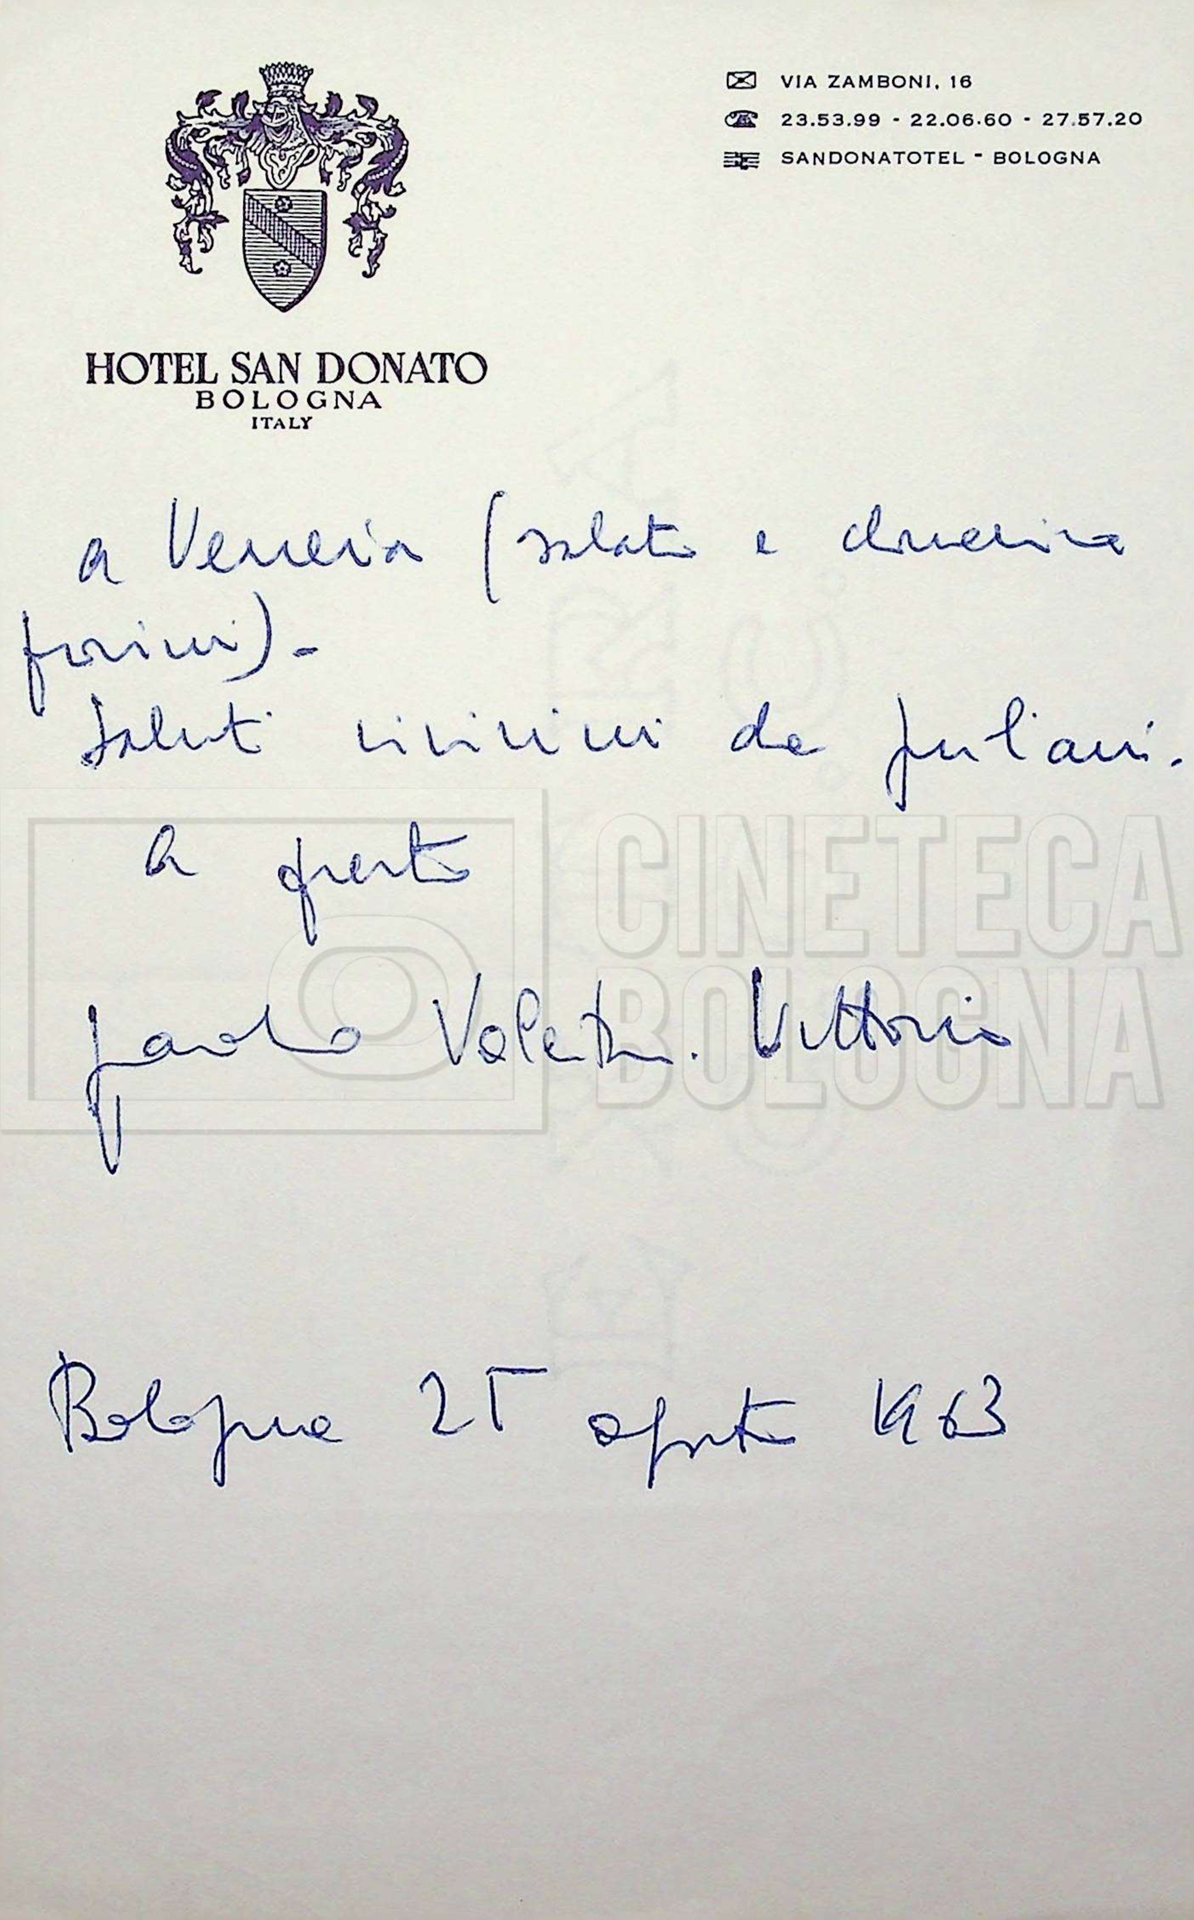 VIA ZAMBONI, 16
23.53.99 - 22.06.60 - 27.57.20
SANDONATOTEL - BOLOGNA
HOTEL SAN DONATO
BOLOGNA
ITALY
a Venezia (sabato e domenica
prossimi).-
Saluti vivissimi da
a presto
Paolo Valentino. Vittorio
Bologna 25 agosto 1963
CINETECA
BOLOGNA